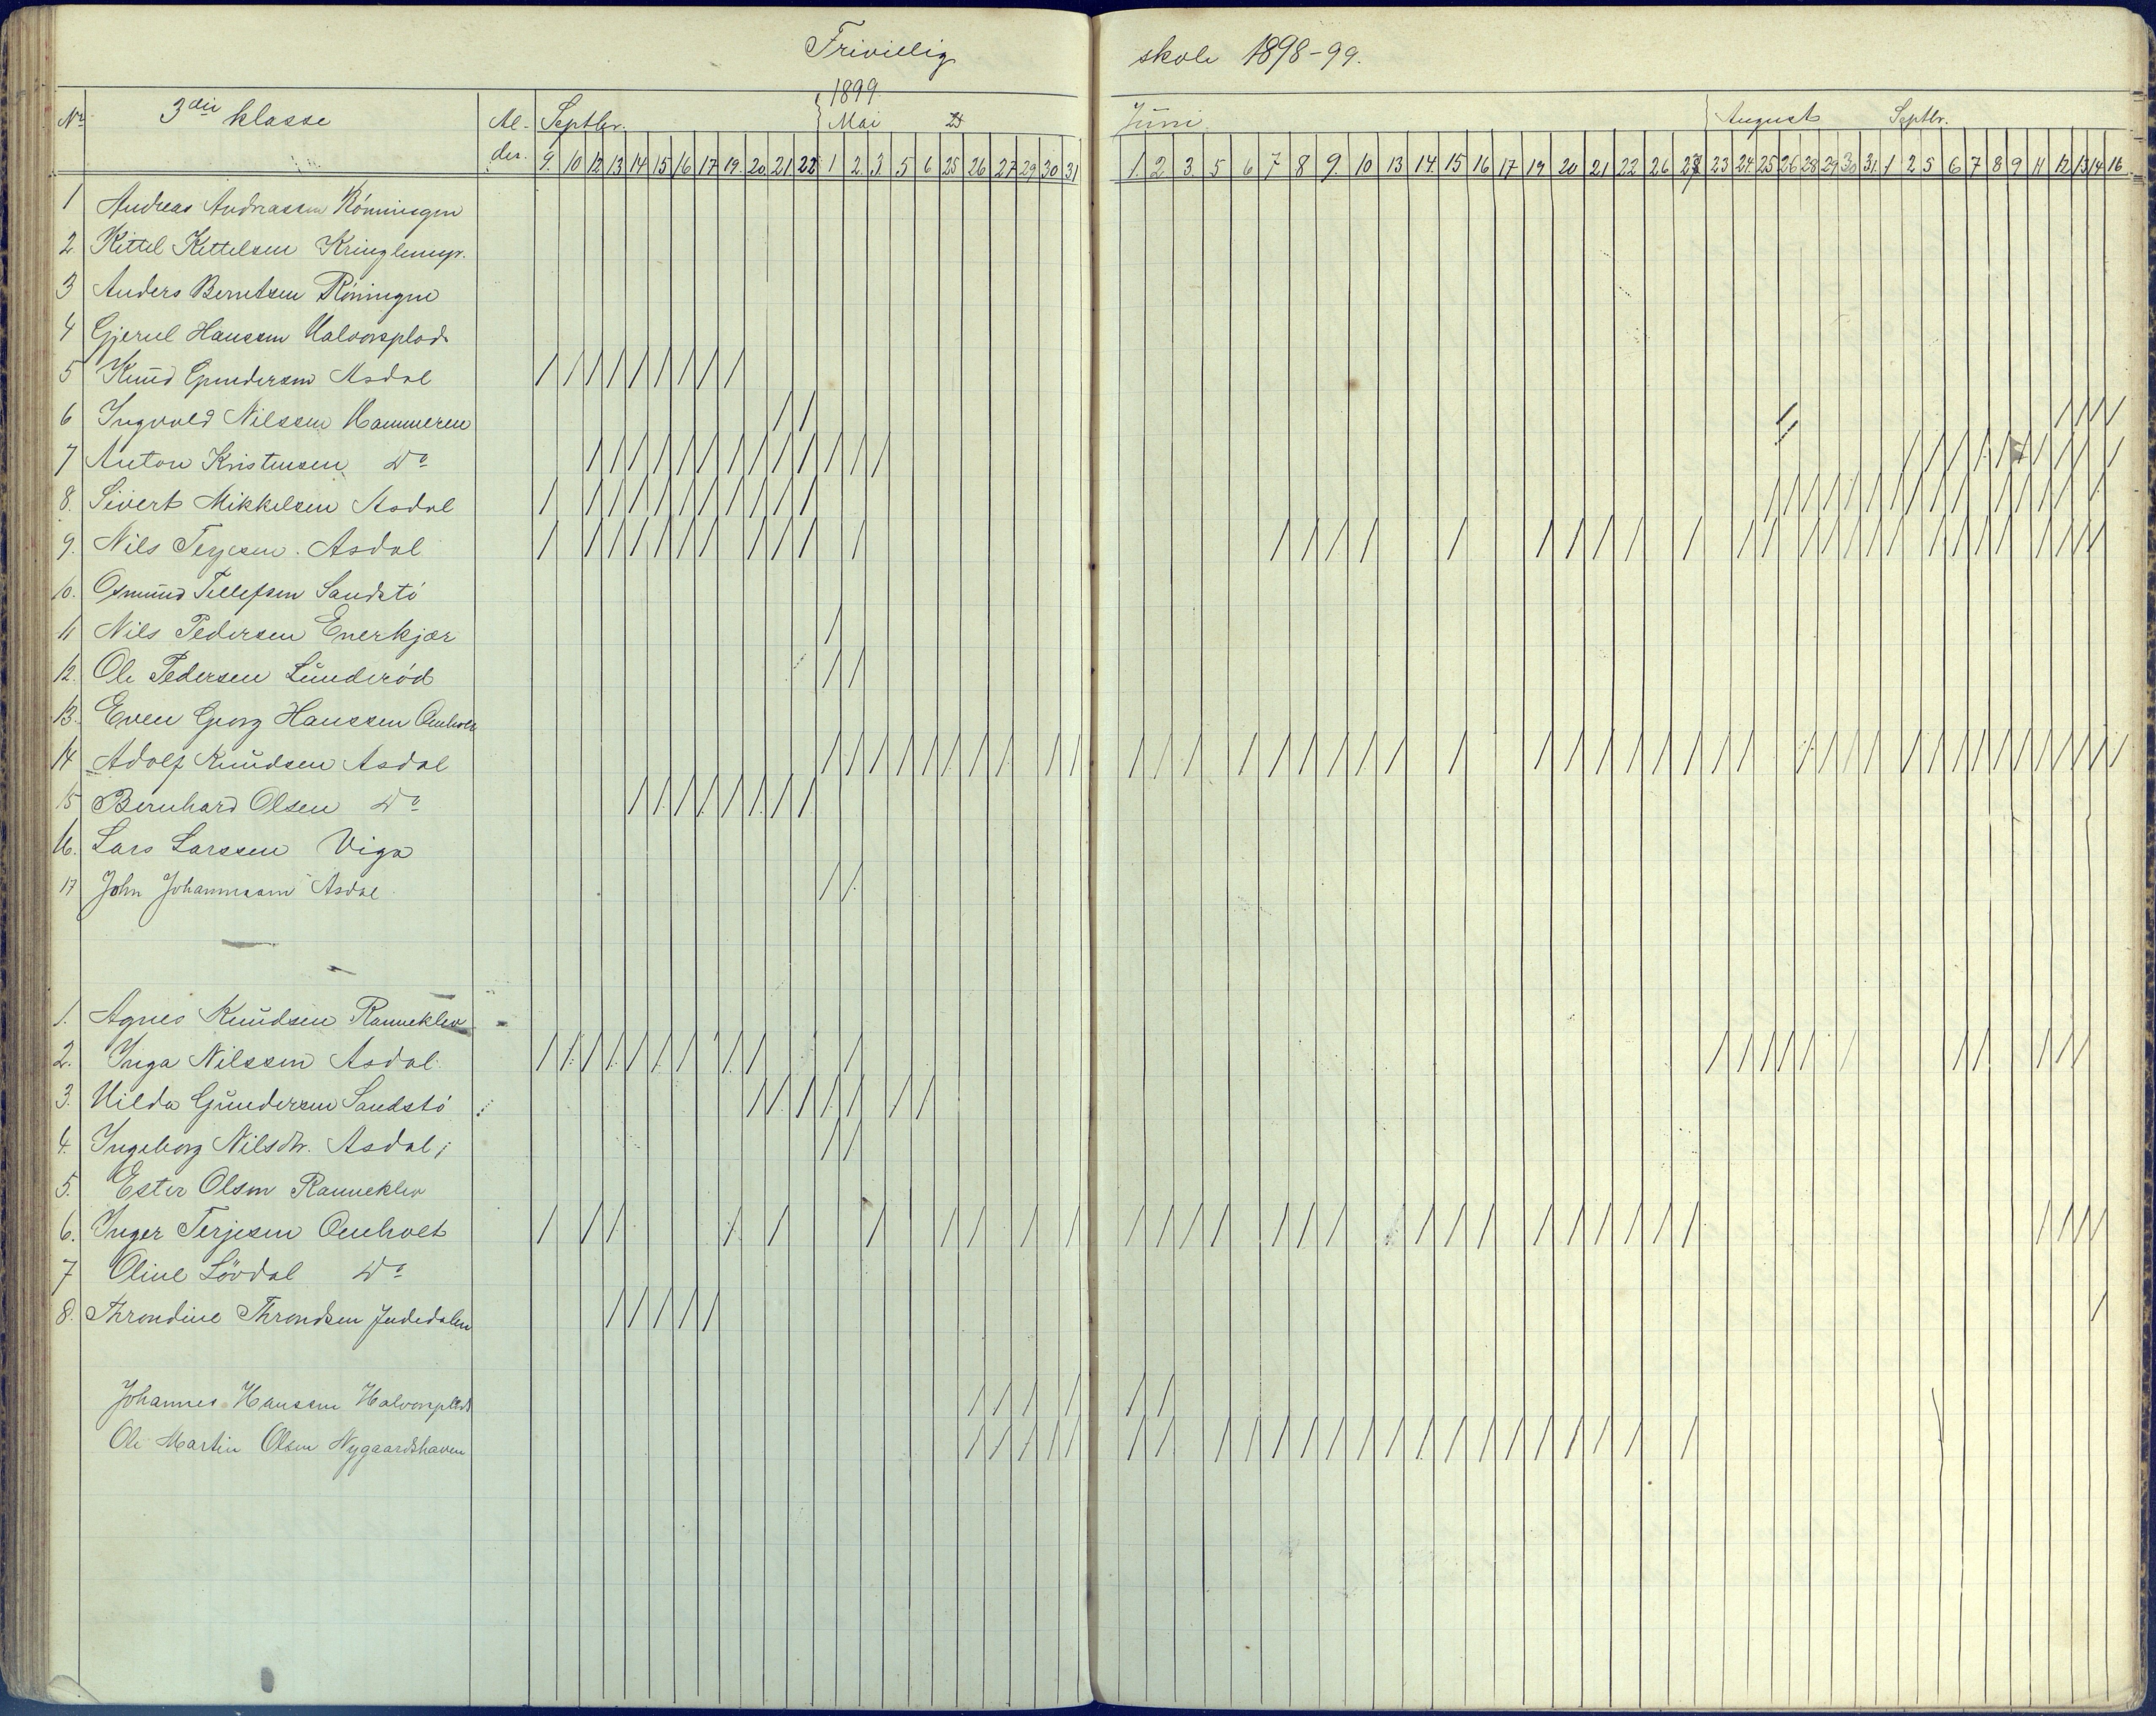 Frivillig skole 1898-99.
No 3die klasse Al-der. Septbr. 1899 Mai 25 Juni. August Septbr.
9. 10 12 13 14 15 16 17 19. 20. 21 22 1 2. 3. 5 6 25 26 27 29 30 31 1. 2 3. 5 6 7 8 9. 10 13 14. 15 16 17 19 20 21 22 26 27 23 24. 25 26 28 29 30 31. 1 2 5 6 7 8 9 11 12 13 14 16
1 Andreas Andreassen Rönningen
2. Kittel Kettelsen Kringlemyr.
3 Anders Berntsen Röningen
4 Gjerul Hanssen Halvorsplads
5 Knud Gundersen Asdal
6 Ingvald Nilssen Hammeren
7 Anton Kristensen Do
8. Sivert Mikkelsen Asdal
9. Nils Terjesen. Asdal
10. Osmund Tellefsen Sandstö
11 Nils Pedersen Enerkjær
12. Ole Pedersen Lunderöd
13. Even Georg Hanssen Omholt
14 Adolf Knudsen Asdal
15 Bernhard Olsen Do
16. Lars Larssen Viga
17 John Johannessen Asdal
1. Agnes Knudsen Ranneklev
2. Inga Nilssen Asdal.
3. Hilda Gundersen Sandstö
4. Ingeborg Nilsdtr. Asdal
5. Ester Olsen Ranneklev
6. Inger Terjesen Omholt
7 Oline Lövdal Do
8. Throndine Throndsen Indedalen
Johannes Hanssen Halvorsplads
Ole Martin Olsen Nygaardshaven